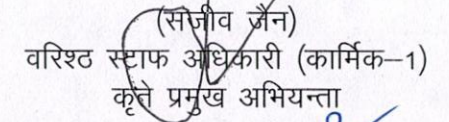 (संजीव जैन)
वरिश्ठ स्टाफ अधिकारी (कार्मिक–1)
कृते प्रमुख अभियन्ता